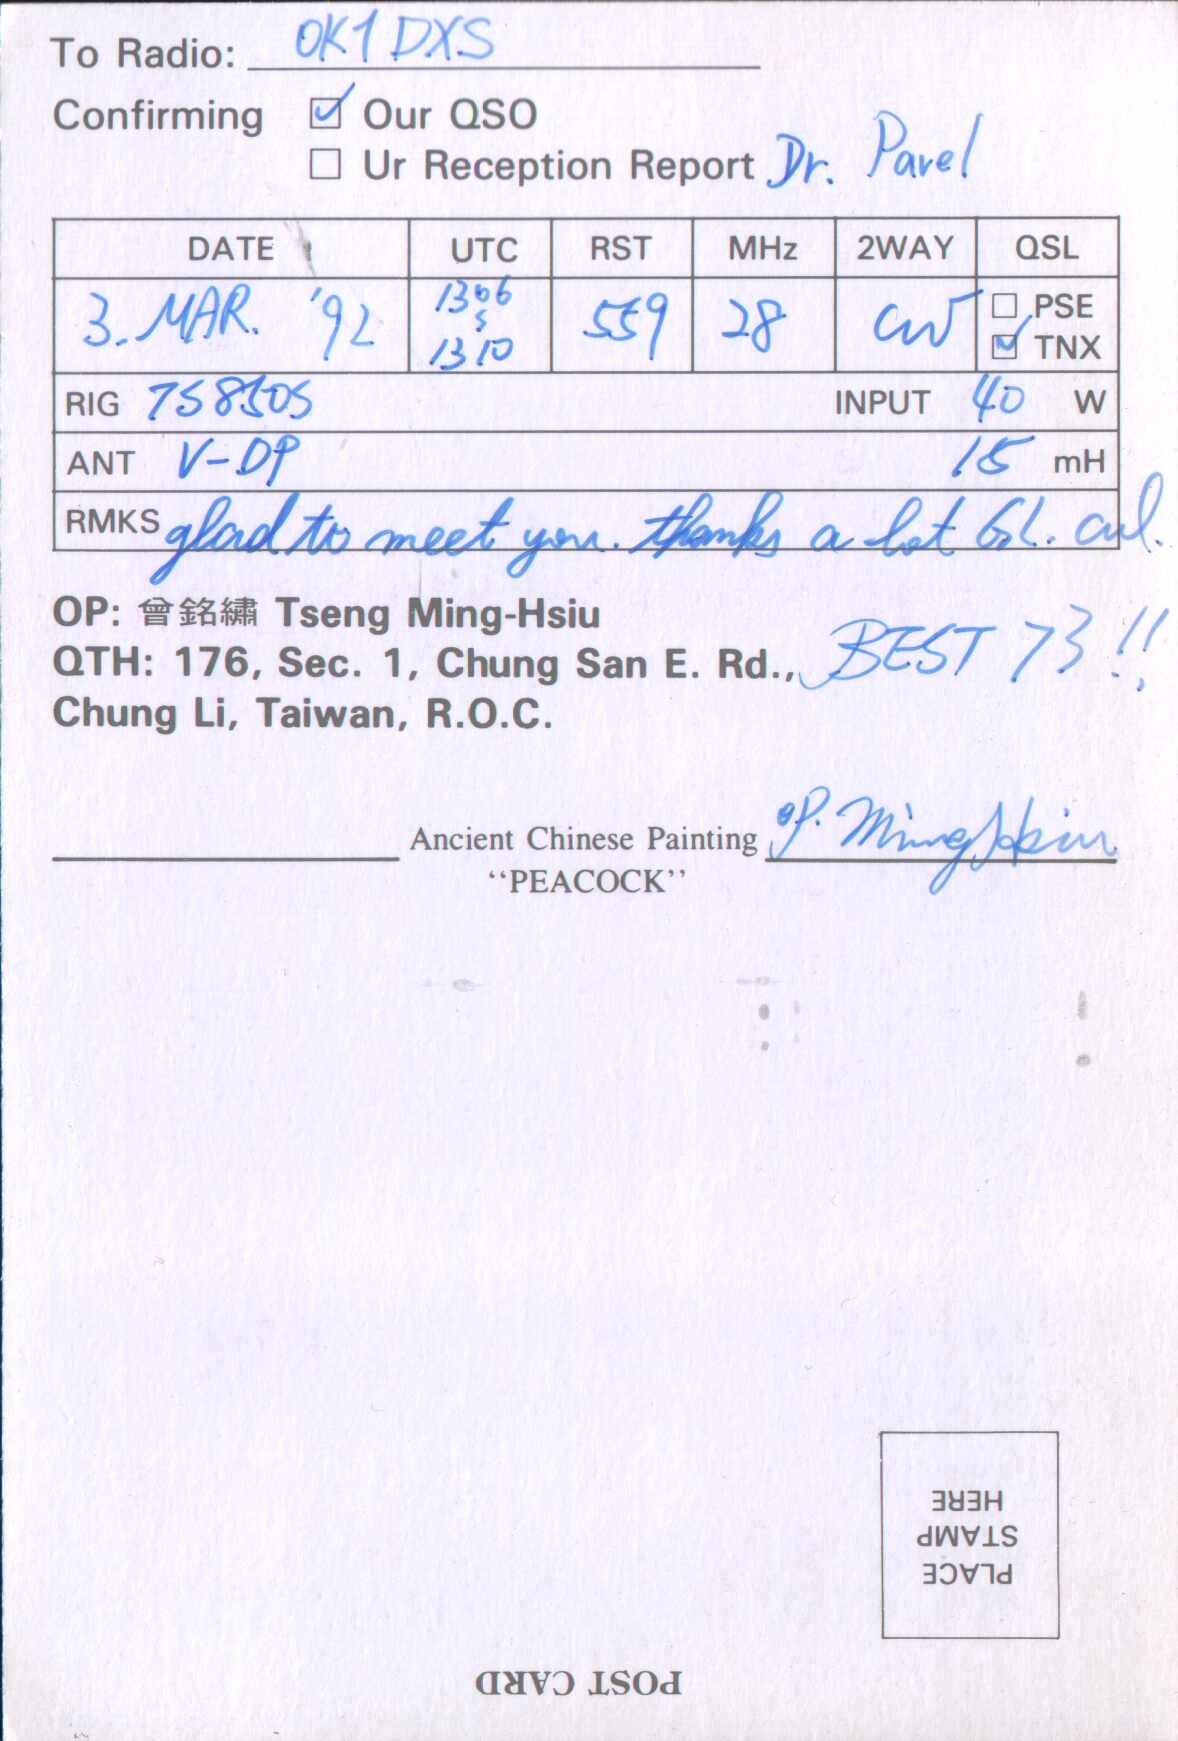 To Radio: OK1DXS
Confirming ☑ Our QSO
☐ Ur Reception Report Dr. Pavel
DATE UTC RST MHz 2WAY QSL
3. MAR. '92 1306 559 28 CW ☐ PSE
1310 ☑ TNX
RIG TS850S INPUT 40 W
ANT V-DP 15 mH
RMKS glad to meet you. thanks a lot G.L. cul.
OP: 曾銘繡 Tseng Ming-Hsiu
QTH: 176, Sec. 1, Chung San E. Rd., BEST 73!!
Chung Li, Taiwan, R.O.C.
Ancient Chinese Painting OP. Ming Hsiu
"PEACOCK"
PLACE
STAMP
HERE
POST CARD